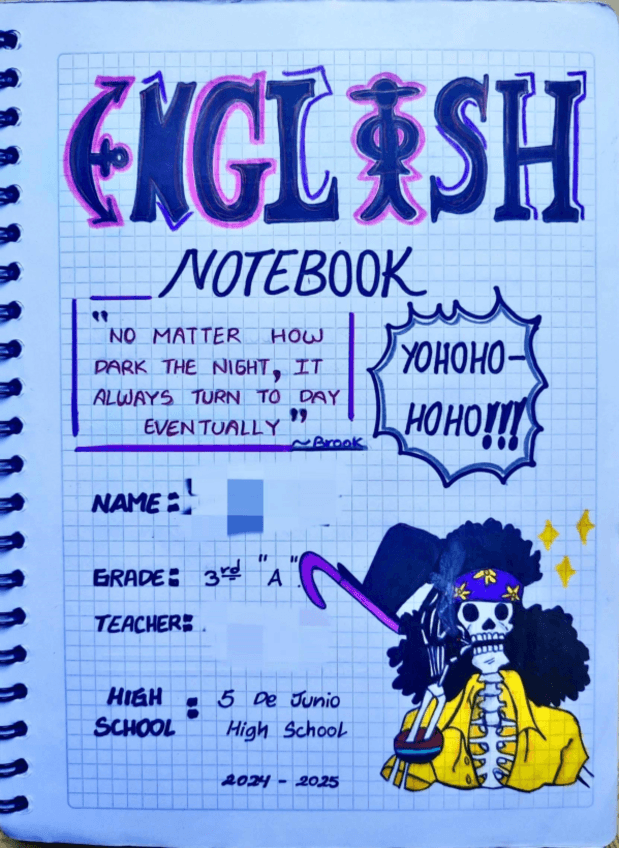 ENGLISH
NOTEBOOK
"NO MATTER HOW
DARK THE NIGHT, IT
ALWAYS TURN TO DAY
EVENTUALLY"
~Brook
YOHOHO-
HOHO!!!
NAME:
GRADE: 3rd "A".
TEACHER:
HIGH
SCHOOL : 5 De Junio
High School
2024 - 2025